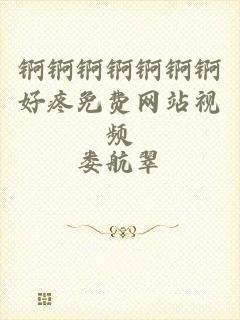 锕锕锕锕锕锕锕
好疼免费网站视
频
娄航翠